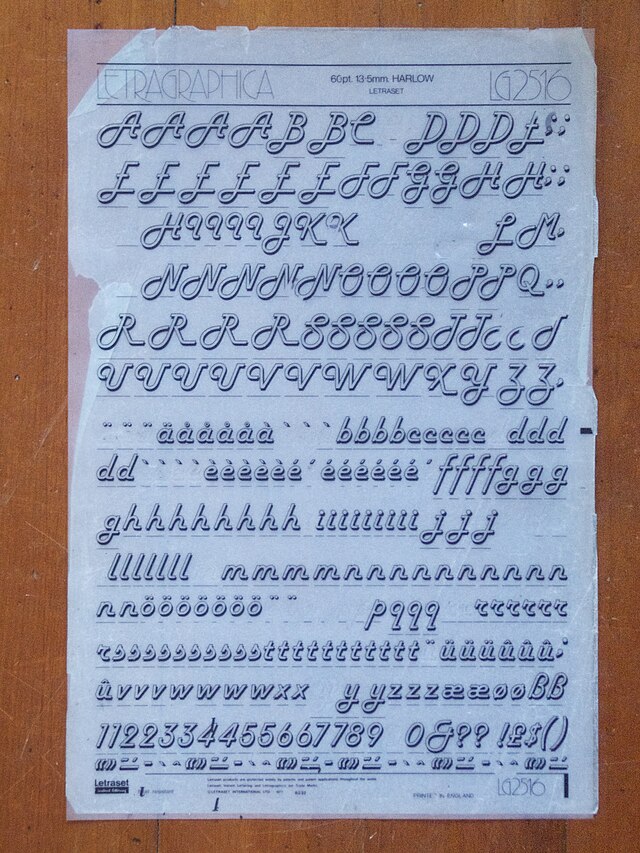 LETRAGRAPHICA 60pt. 13·5mm. HARLOW LG2516
LETRASET
AAAABBC DDD£:;
EEEEEEFFGGHH:;
HIIIIJKK LM.
NNNNNOOOOPPQ..
RRRRSSSSSTTcc T
UUUUVVWWXYZZ.
¨¨¨äååååà```bbbbccccc ddd
dd````èèèèé´éééééé´ffffggg
ghhhhhhhh iiiiiiiiii jjj
lllllll mmmmnnnnnnnnnnn
nnööööööö¨¨ pqqq rrrrrr
rssssssssssttttttttttt¨üüüûûû.
ûvvvwwwwxx yyzzzææøøßß
112233444556677789 0&?? !£$()
Letraset
Letraset products are protected solely by patents and patent applications throughout the world.
Letraset, Instant Lettering and Letragraphica are Trade Marks.
©LETRASET INTERNATIONAL LTD
PRINTED IN ENGLAND LG2516